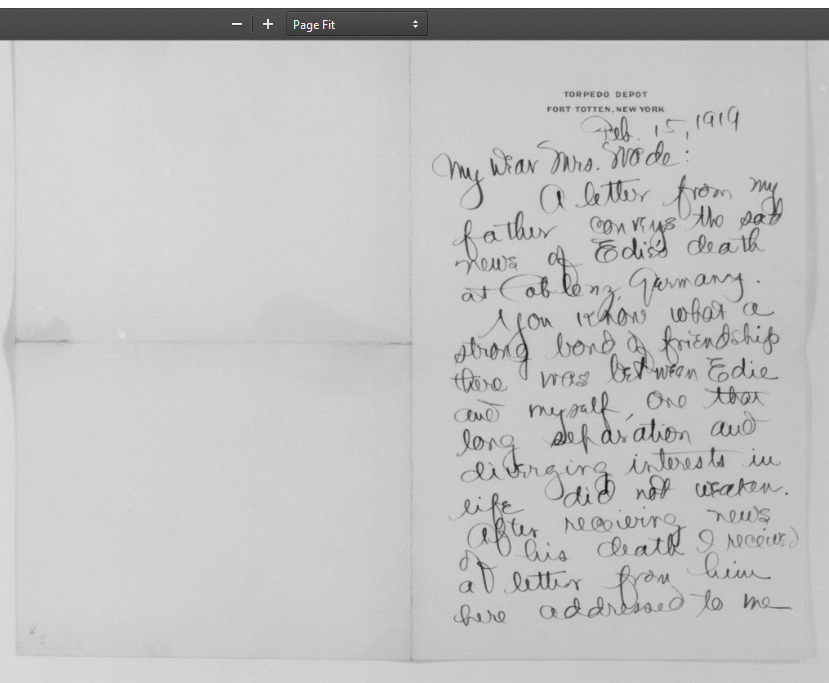 Page Fit
TORPEDO DEPOT
FORT TOTTEN, NEW YORK
Feb. 15, 1919
My Dear Mrs. Wade:
A letter from my
father conveys the sad
news of Edie's death
at Coblenz, Germany.
You know what a
strong bond of friendship
there was between Edie
and myself, one that
long separation and
diverging interests in
life did not weaken.
After receiving news
of his death I received
a letter from him
here addressed to me